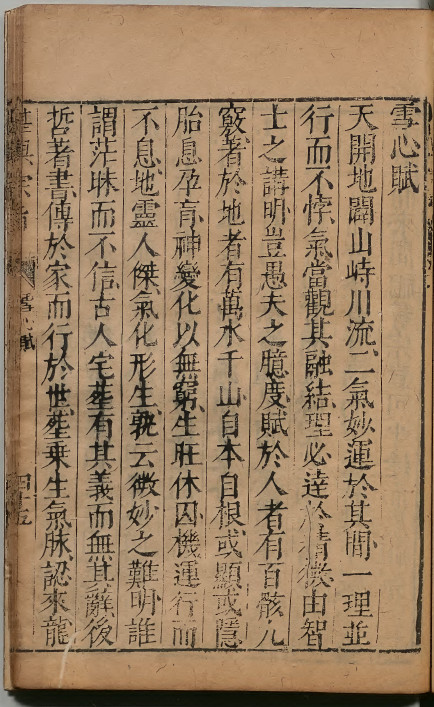 雪心賦
天開地闢山峙川流二氣妙運於其間一理並
行而不悖氣當觀其融結理必達於精微由智
士之講明豈愚夫之臆度賦於人者有百骸九
竅著於地者有萬水千山自本自根或顯或隱
胎息孕育神變化以無窮生旺休囚機運行而
不息地靈人傑氣化形生孰云微妙之難明誰
謂茫昧而不信古人宅塟有其義而無其辭後
哲著書傳於家而行於世塟乗生氣脉認來龍
雪心賦
四十五